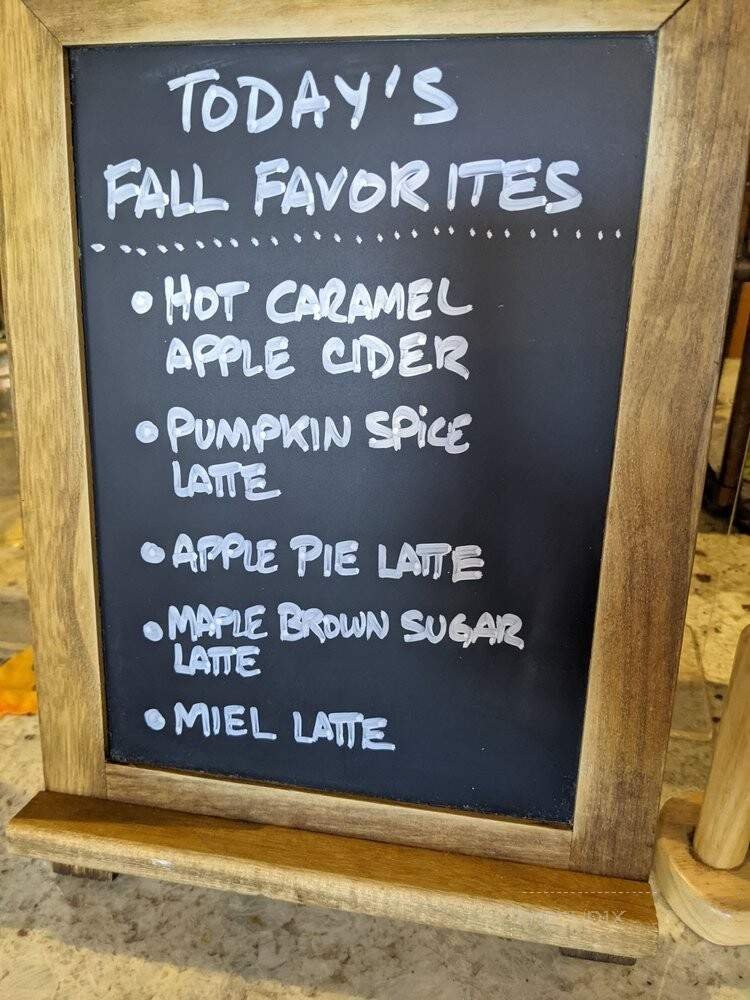 TODAY'S
FALL FAVORITES
• HOT CARAMEL
APPLE CIDER
• PUMPKIN SPiCE
LATTE
• APPLE PIE LATTE
• MAPLE BROWN SUGAR
LATTE
• MIEL LATTE